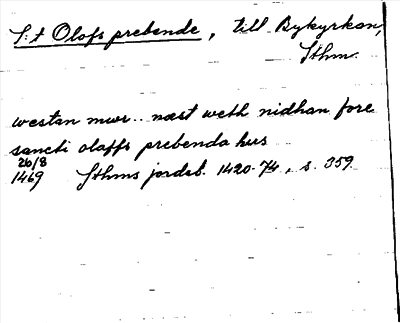 S:t Olofs prebende, till Bykyrkan,
Sthm.
westan mwr.. næst weth nidhan fore
sancti olaffs prebenda hus
26/8
1469 Sthms jordeb. 1420-74, s. 359.